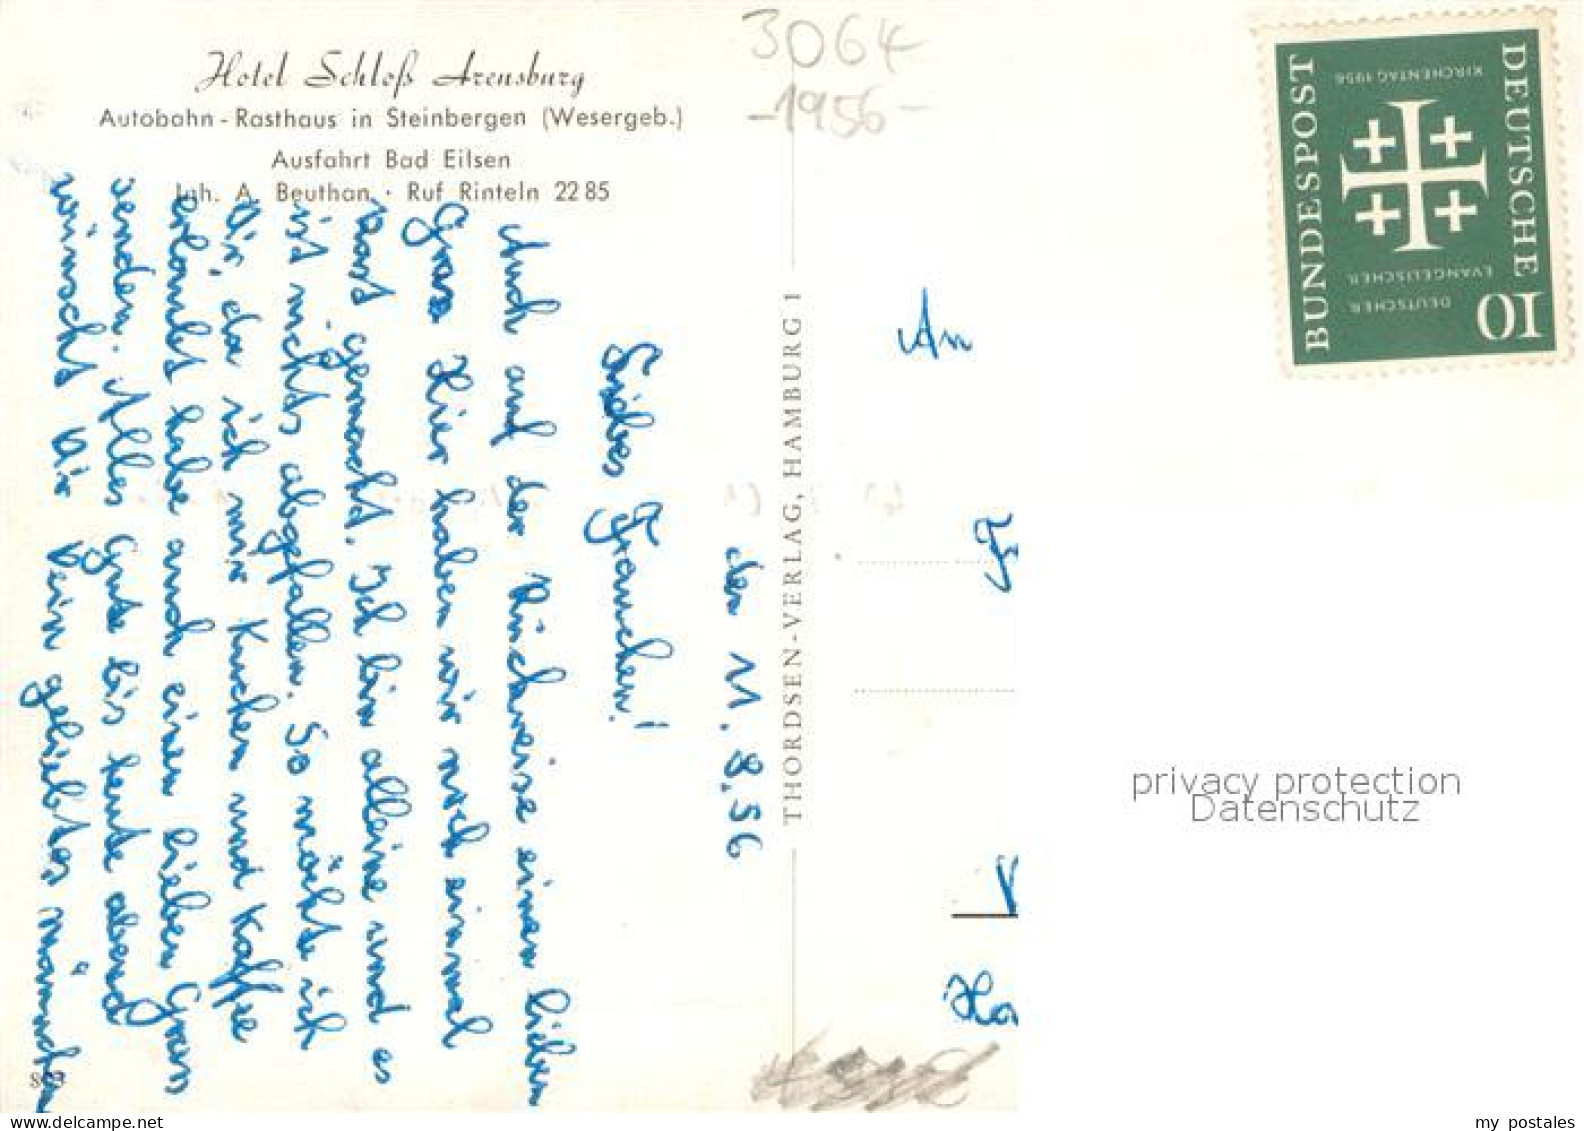 Hotel Schloß Arensburg
Autobahn-Rasthaus in Steinbergen (Wesergeb.)
Ausfahrt Bad Eilsen
Inh. A. Beuthan · Ruf Rinteln 22 85
3064
-1956-
den 11.8.56
Liebes Frauchen!
Auch auf der Rückreise einen lieben
Gruss Hier haben wir noch einmal
Rast gemacht. Ich bin alleine und es
ist nichts abgefallen. So möchte ich
Dir, da ich mir Kuchen und Kaffee
erlaubt habe auch einen lieben Gruss
senden. Alles Gute bis heute abend
wünscht Dir Dein geliebtes Männchen
THORDSEN-VERLAG, HAMBURG 1
An
DEUTSCHE
BUNDESPOST
10
KIRCHENTAG 1956
EVANGELISCHER
DEUTSCHER
privacy protection
Datenschutz
www.delcampe.net
my_postales